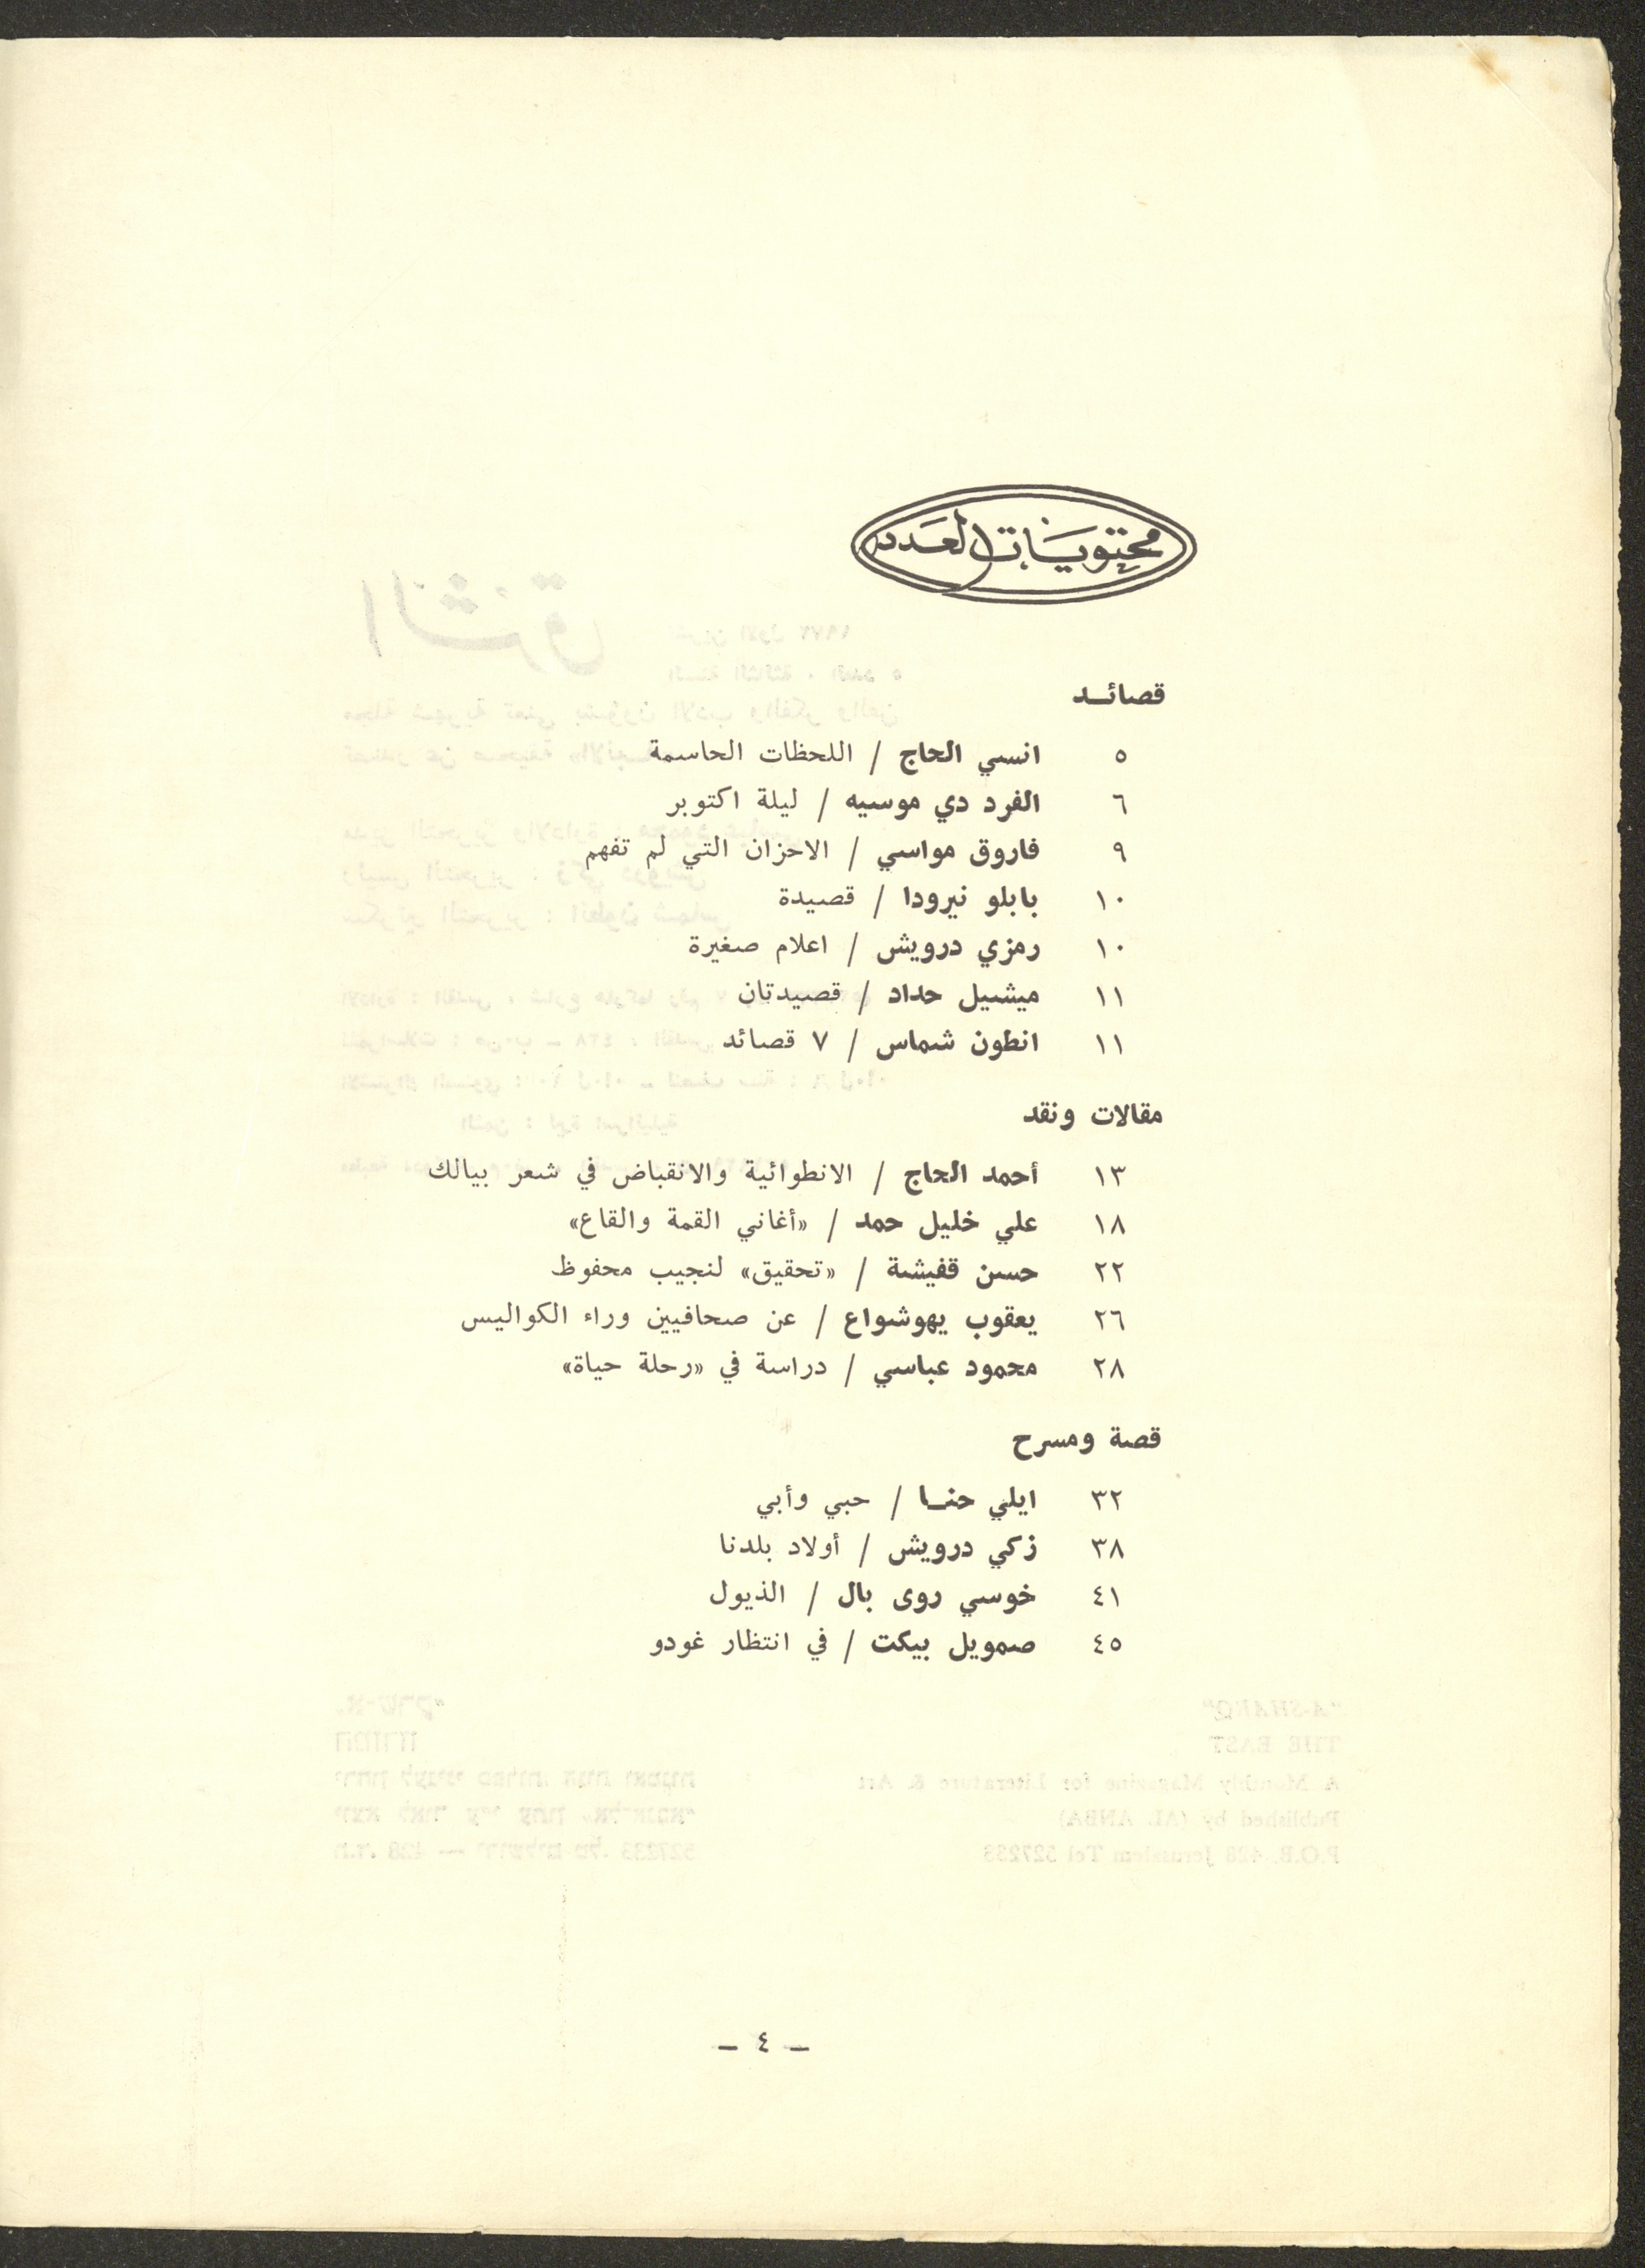 محتويات العدد
قصائد
٥ انسي الحاج / اللحظات الحاسمة
٦ الفرد دي موسيه / ليلة اكتوبر
٩ فاروق مواسي / الاحزان التي لم تفهم
١٠ بابلو نيرودا / قصيدة
١٠ رمزي درويش / اعلام صغيرة
١١ ميشيل حداد / قصيدتان
١١ انطون شماس / ٧ قصائد
مقالات ونقد
١٣ أحمد الحاج / الانطوائية والانقباض في شعر بيالك
١٨ علي خليل حمد / «أغاني القمة والقاع»
٢٢ حسن قفيشة / «تحقيق» لنجيب محفوظ
٢٦ يعقوب يهوشواع / عن صحافيين وراء الكواليس
٢٨ محمود عباسي / دراسة في «رحلة حياة»
قصة ومسرح
٣٢ ايلي حنا / حبي وأبي
٣٨ زكي درويش / أولاد بلدنا
٤١ خوسي روى بال / الذيول
٤٥ صمويل بيكت / في انتظار غودو
– ٤ –